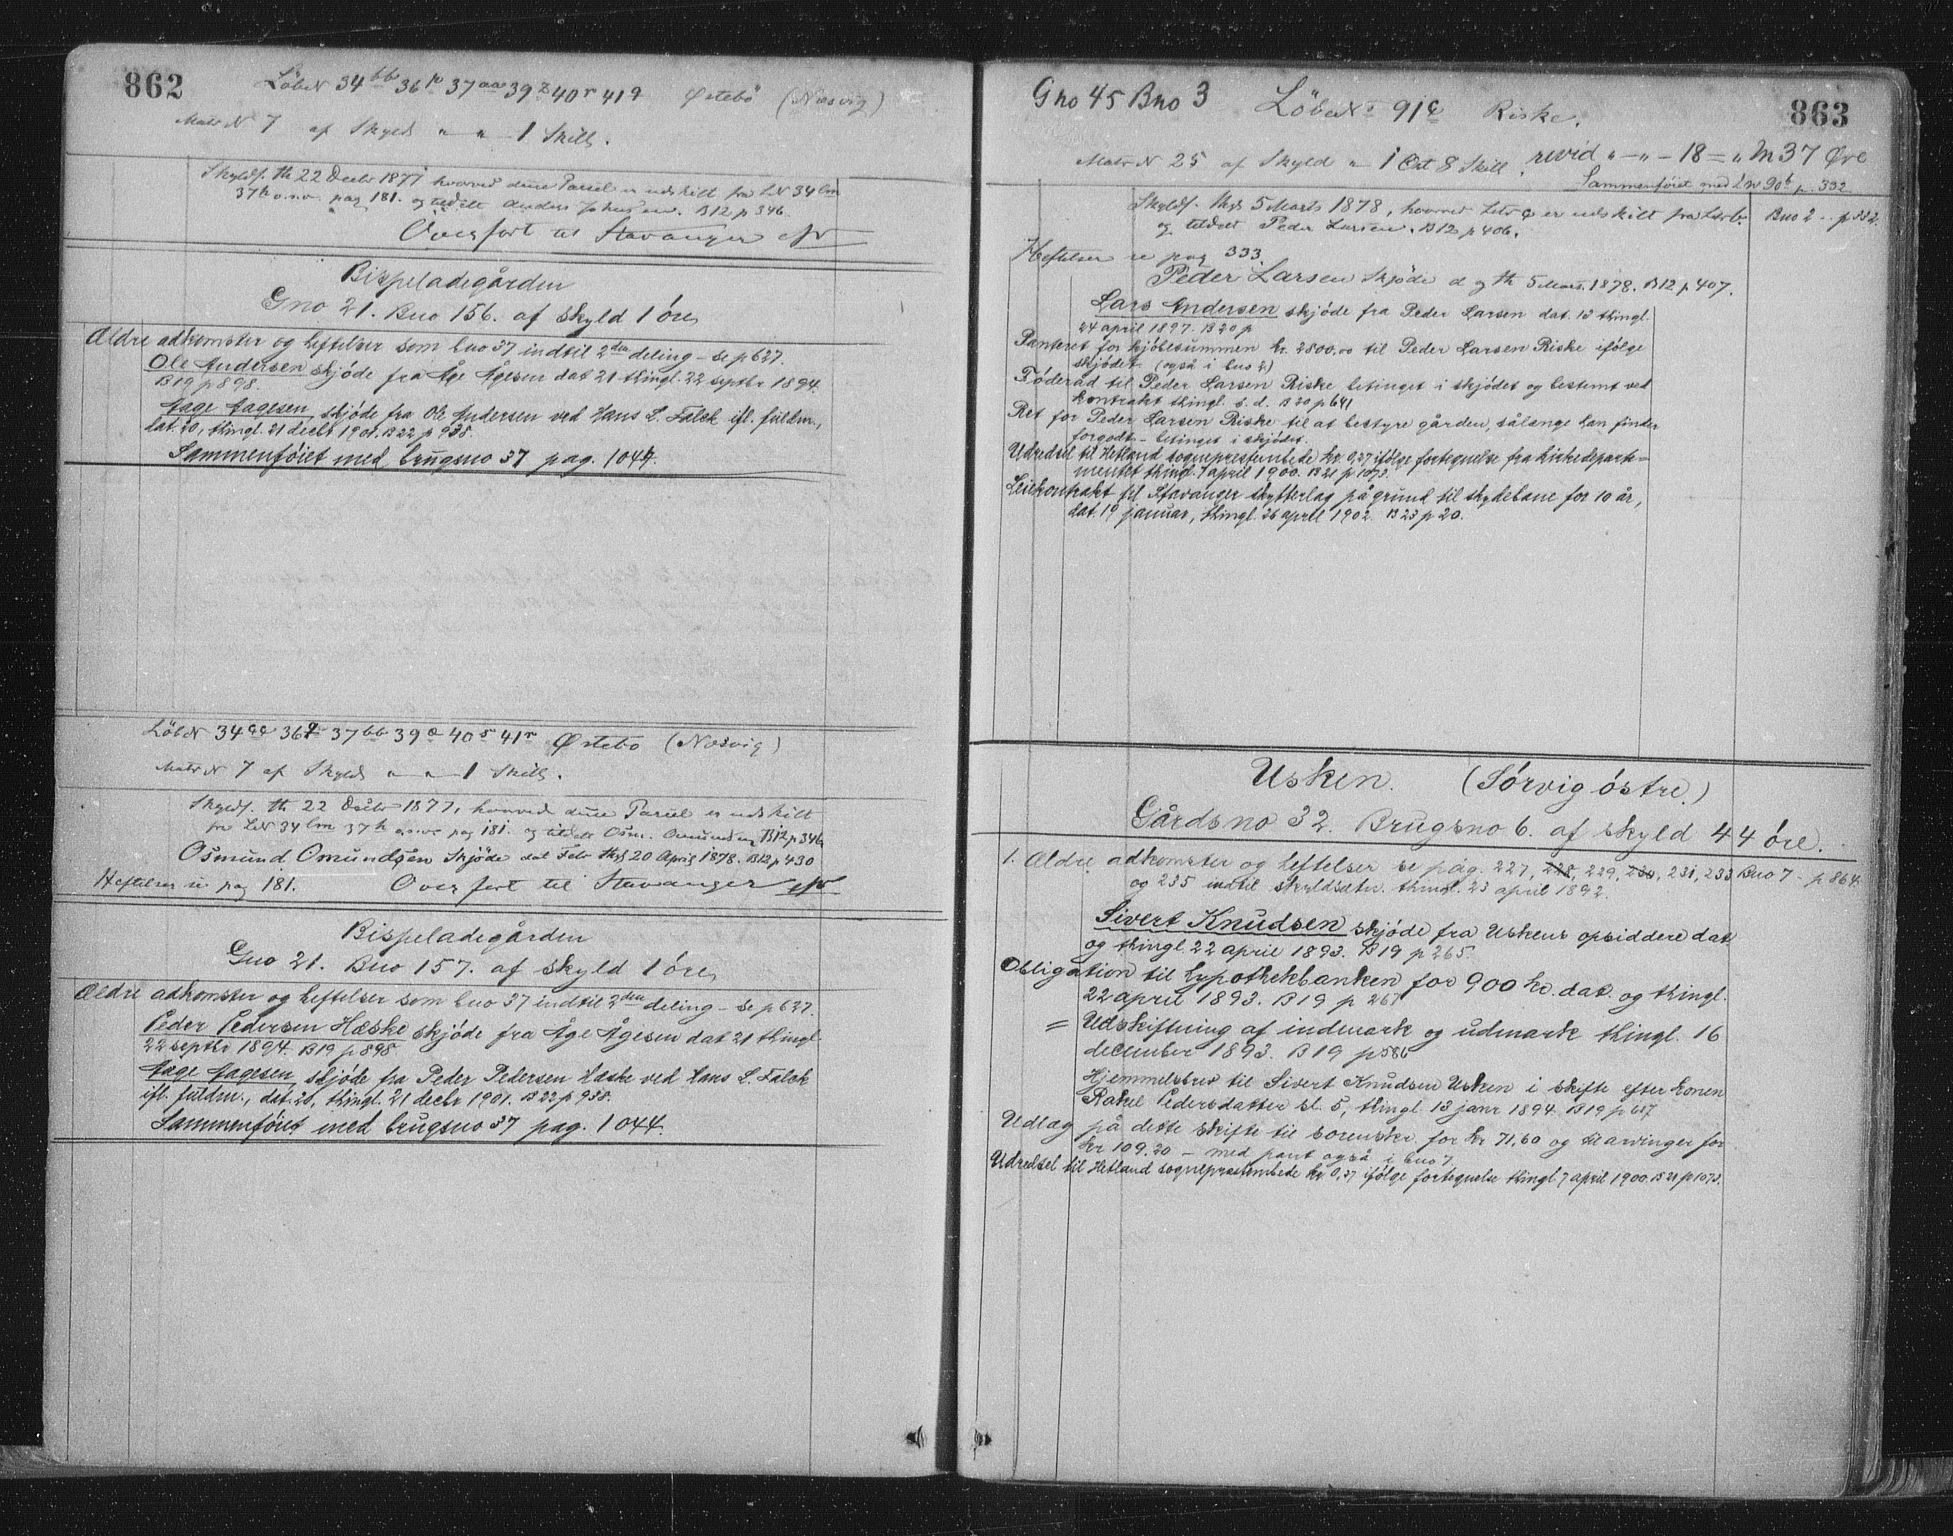 862
LöbeN 34bb 36p 37aa 39z 40r 41q Östebö (Næsvig)
Matr N 7 af Skyld " " 1 Skill.
Skyldf. th 22 Decbr 1877 hvorved denne Parcel er udskilt fra LN 34 lm
37h o.s.v. pag 181. og tildelt Anders Johnsen. B12 p 346.
Overført til Stavanger
Bispeladegården
Gno 21. Bno 156. af skyld 1 öre,
Ældre adkomster og heftelser som bno 37 indtil 2den deling – se p 627.
Ole Andersen skjöde fra Åge Ågesen dat 21 thingl. 22 septbr 1894.
B19 p 898.
Aage Aagesen, skjöde fra Ole Andersen ved Hans L. Falck ifl. fuldm.,
dat. 20, thingl. 21 decbr 1901. B22 p 938.
Sammenföiet med brugsno 37 pag. 1044.
LöbeN 34cc 36q 37bb 39æ 40s 41r Östebö (Næsvig)
Matr N 7 af Skyld " " 1 Skill.
Skyldf. th 22 Decbr 1877, hvorved denne Parcel er udskilt
fra LN 34 lm 37h o.s.v. pag 181. og tildelt Osm. Omundsen B12 p 346
Osmund Omundsen Skjöde dat Febr thgl 20 April 1878. B12 p 430
Heftelser se pag 181. Overført til Stavanger
Bispeladegården
Gno 21. Bno 157. af skyld 1 öre,
Ældre adkomster og heftelser som bno 37 indtil 2den deling – se p 627.
Peder Pedersen Hæske skjöde fra Åge Ågesen dat 21 thingl
22 septbr 1894. B19 p 898
Aage Aagesen, skjöde fra Peder Pedersen Hæske ved Hans L. Falck
ifl. fuldm., dat. 20, thingl. 21 decbr 1901. B22 p 938.
Sammenföiet med brugsno 37 pag. 1044.
863
Gno 45 Bno 3 LöbeNo 91c Riske.
Matr N 25 af Skyld " 1 Ort 8 Skill. revid " – " – 18 = " M 37 Öre
Sammenföiet med LN 90b p. 332
Skyldf. thgl 5 Marts 1878, hvorved Litr c er udskilt fra Litr b. Bno 2 – p 332.
og tildelt Peder Larsen. B12 p 406.
Heftelser se pag 333.
Peder Larsen Skjöde d og th 5 Marts 1878. B12 p 407.
Lars Andersen skjöde fra Peder Larsen dat. 13 thingl.
24 april 1897. B20 p
Panteret for kjöbesummen kr. 2800,00 til Peder Larsen Riske ifölge
skjödet. (også i bno 2)
Föderåd til Peder Larsen Riske betinget i skjödet og bestemt ved
kontrakt thingl. s. d. B20 p 641
Ret for Peder Larsen Riske til at bestyre gården, sålænge han finder
forgodt – betinget i skjödet.
Udredsel til Hetland sognepræstembede kr. 0,27 ifölge fortegnelse fra kirkedeparte=
mentet thingl. 7 april 1900. B21 p 1073.
Leiekontrakt til Stavanger skytterlag på grund til skydebane for 10 år,
dat. 19 januar, thingl. 26 april 1902. B23 p 20.
Usken. (Sörvig östre.)
Gårdsno 32. Brugsno 6. af skyld 44 öre.
1. Ældre adkomster og heftelser se pag. 227, 228, 229, 230, 231, 233 Bno 7 – p 864.
og 235 indtil skyldsætn. thingl. 23 april 1892.
Sivert Knudsen skjöde fra Uskens opsiddere dat
og thingl. 22 april 1893. B19 p 265.
Obligation til hypothekbanken for 900 kr. dat. og thingl.
22 april 1893. B19 p 267
= Udskiftning af indmark og udmark thingl. 16
december 1893. B19 p 586
Hjemmelsbrev til Sivert Knudsen Usken i skifte efter konen
Rakel Pedersdatter sl. 5, thingl 13 janr 1894. B19 p 617
Udlæg på dette skifte til sorenskr. for kr 71,60 og til arvinger for
kr 109.20 – med pant også i bno 7.
Udredsel til Hetland sognepræstembede kr. 0,37 ifölge fortegnelse thingl. 7 april 1900. B21 p 1073.